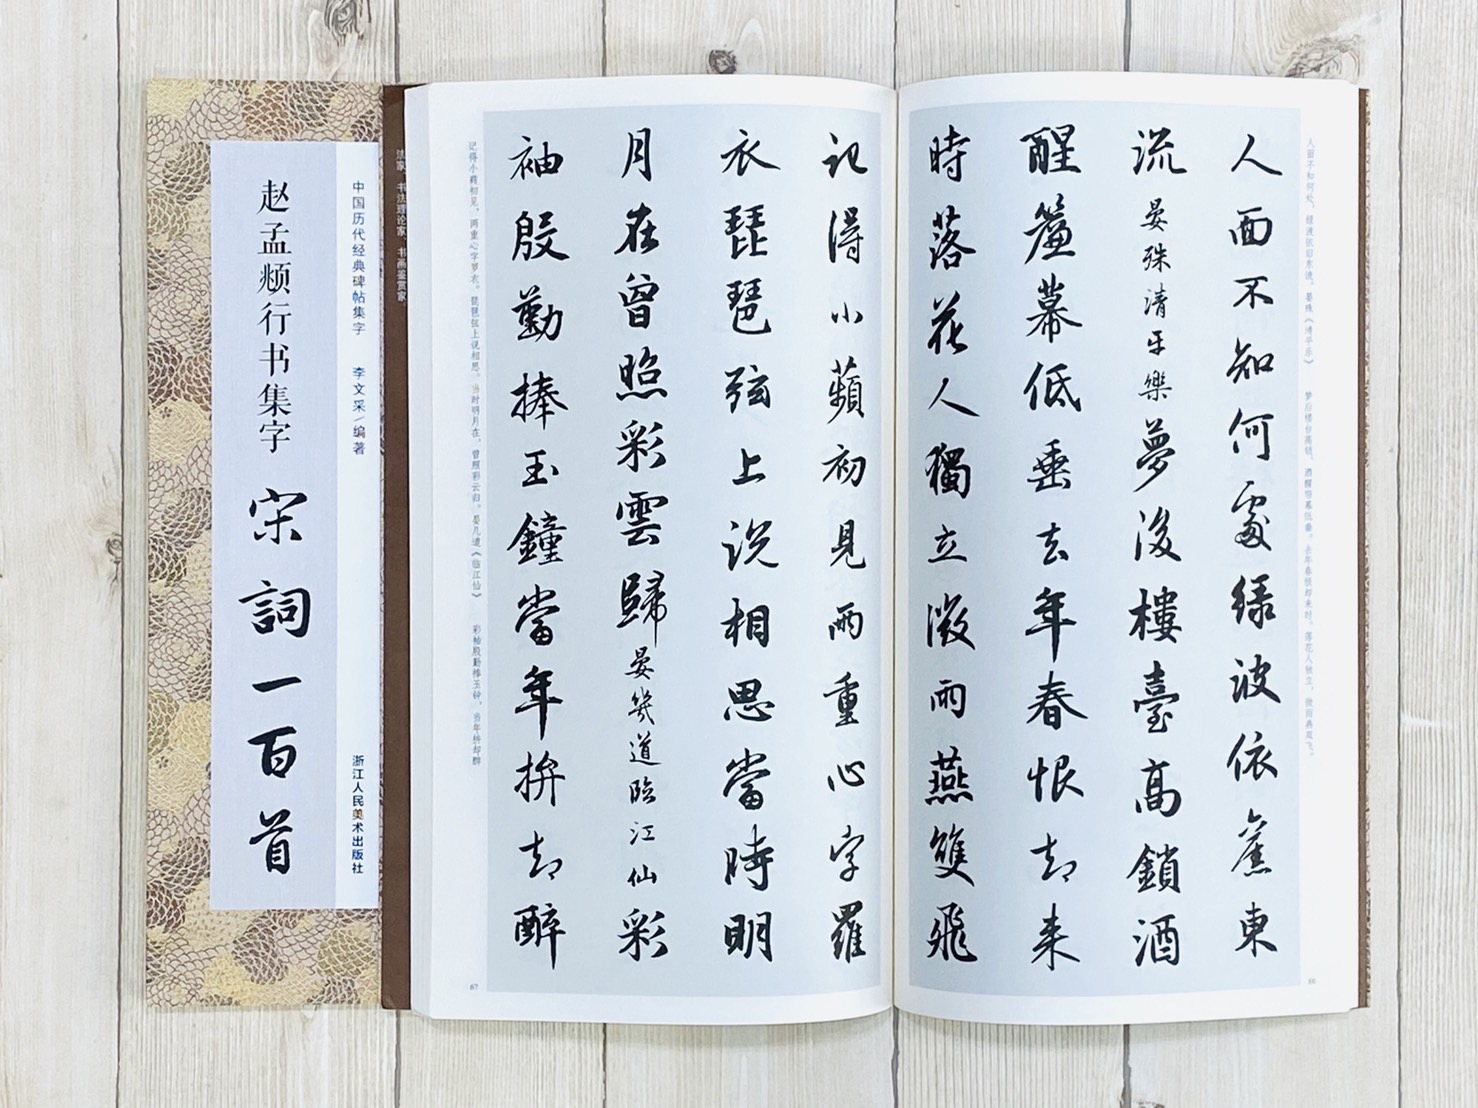 人面不知何處綠波依舊東
流晏殊清平樂夢後樓臺高鎖酒
醒簾幕低垂去年春恨却来
時落花人獨立微雨燕雙飛
人面不知何处，绿波依旧东流。晏殊《清平乐》 梦后楼台高锁，酒醒帘幕低垂。去年春恨却来时，落花人独立，微雨燕双飞。
66
記得小蘋初見兩重心字羅
衣琵琶弦上説相思當時明
月在曾照彩雲歸晏幾道臨江仙彩
袖殷勤捧玉鐘當年拚却醉
记得小蘋初见，两重心字罗衣。琵琶弦上说相思。当时明月在，曾照彩云归。晏几道《临江仙》 彩袖殷勤捧玉钟，当年拚却醉
67
法家、书法理论家、书画鉴赏家。
中国历代经典碑帖集字 李文采/编著
浙江人民美术出版社
赵孟頫行书集字 宋詞一百首